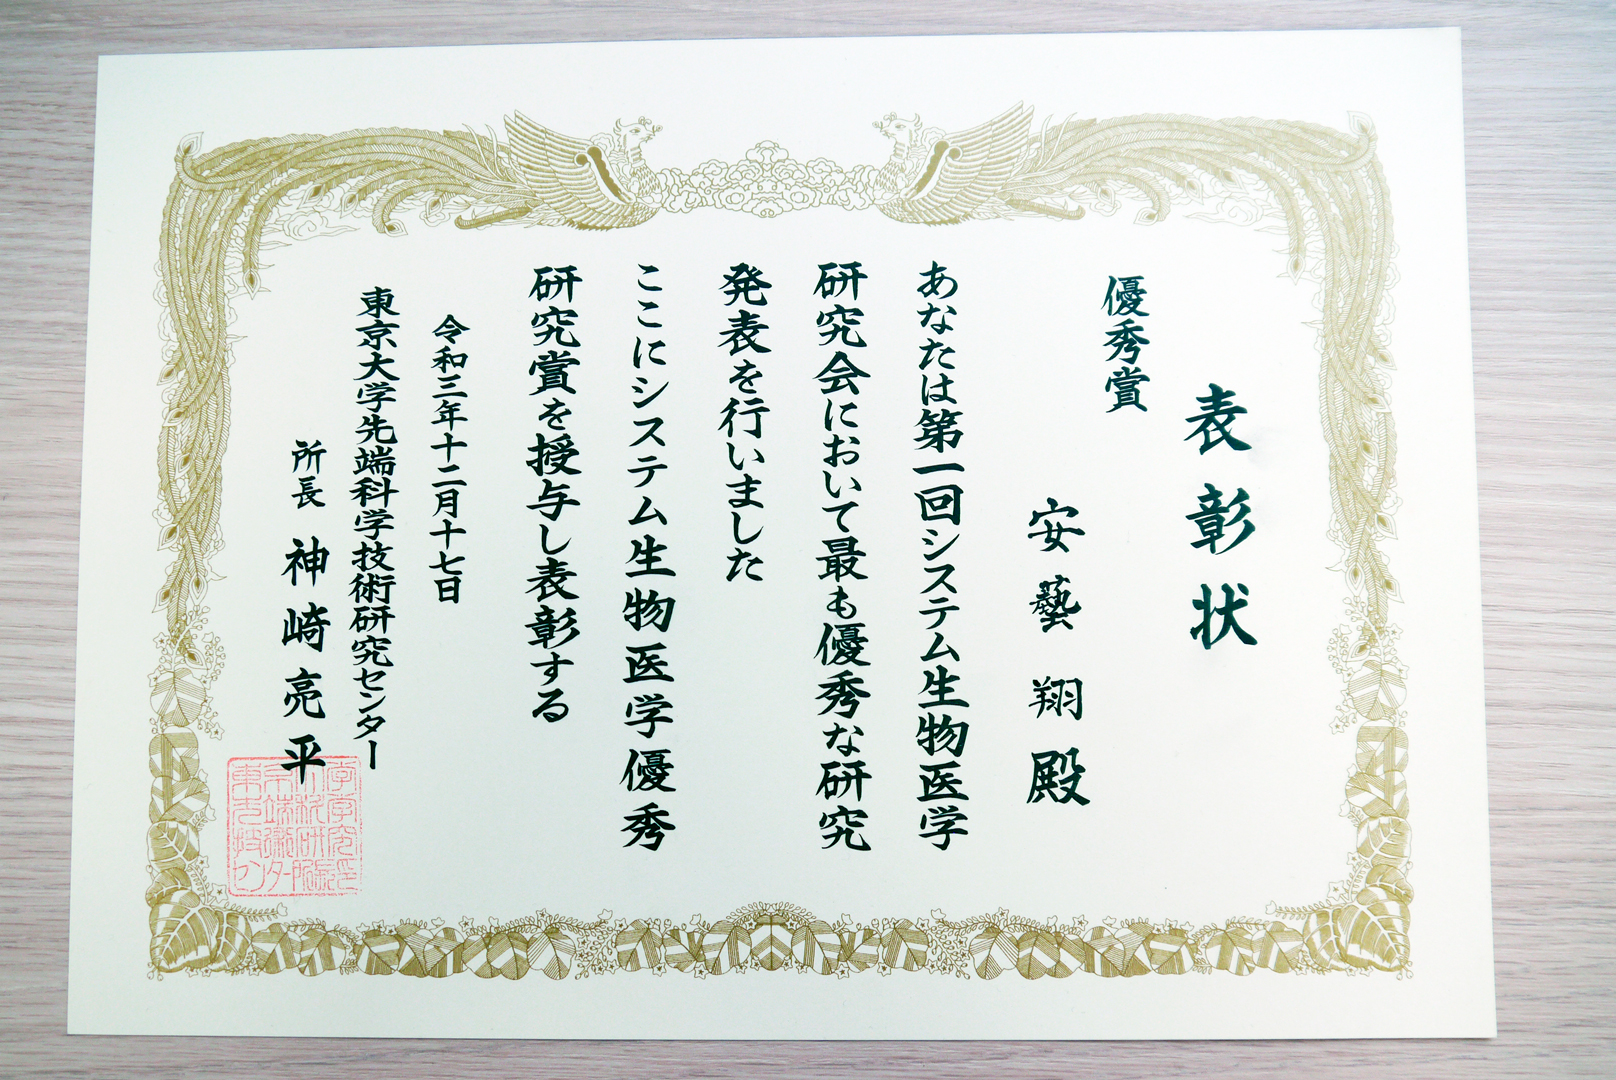 表彰状
優秀賞
安藝翔殿
あなたは第一回システム生物医学
研究会において最も優秀な研究
発表を行いました
ここにシステム生物医学優秀
研究賞を授与し表彰する
令和三年十二月十七日
東京大学先端科学技術研究センター
所長 神崎亮平